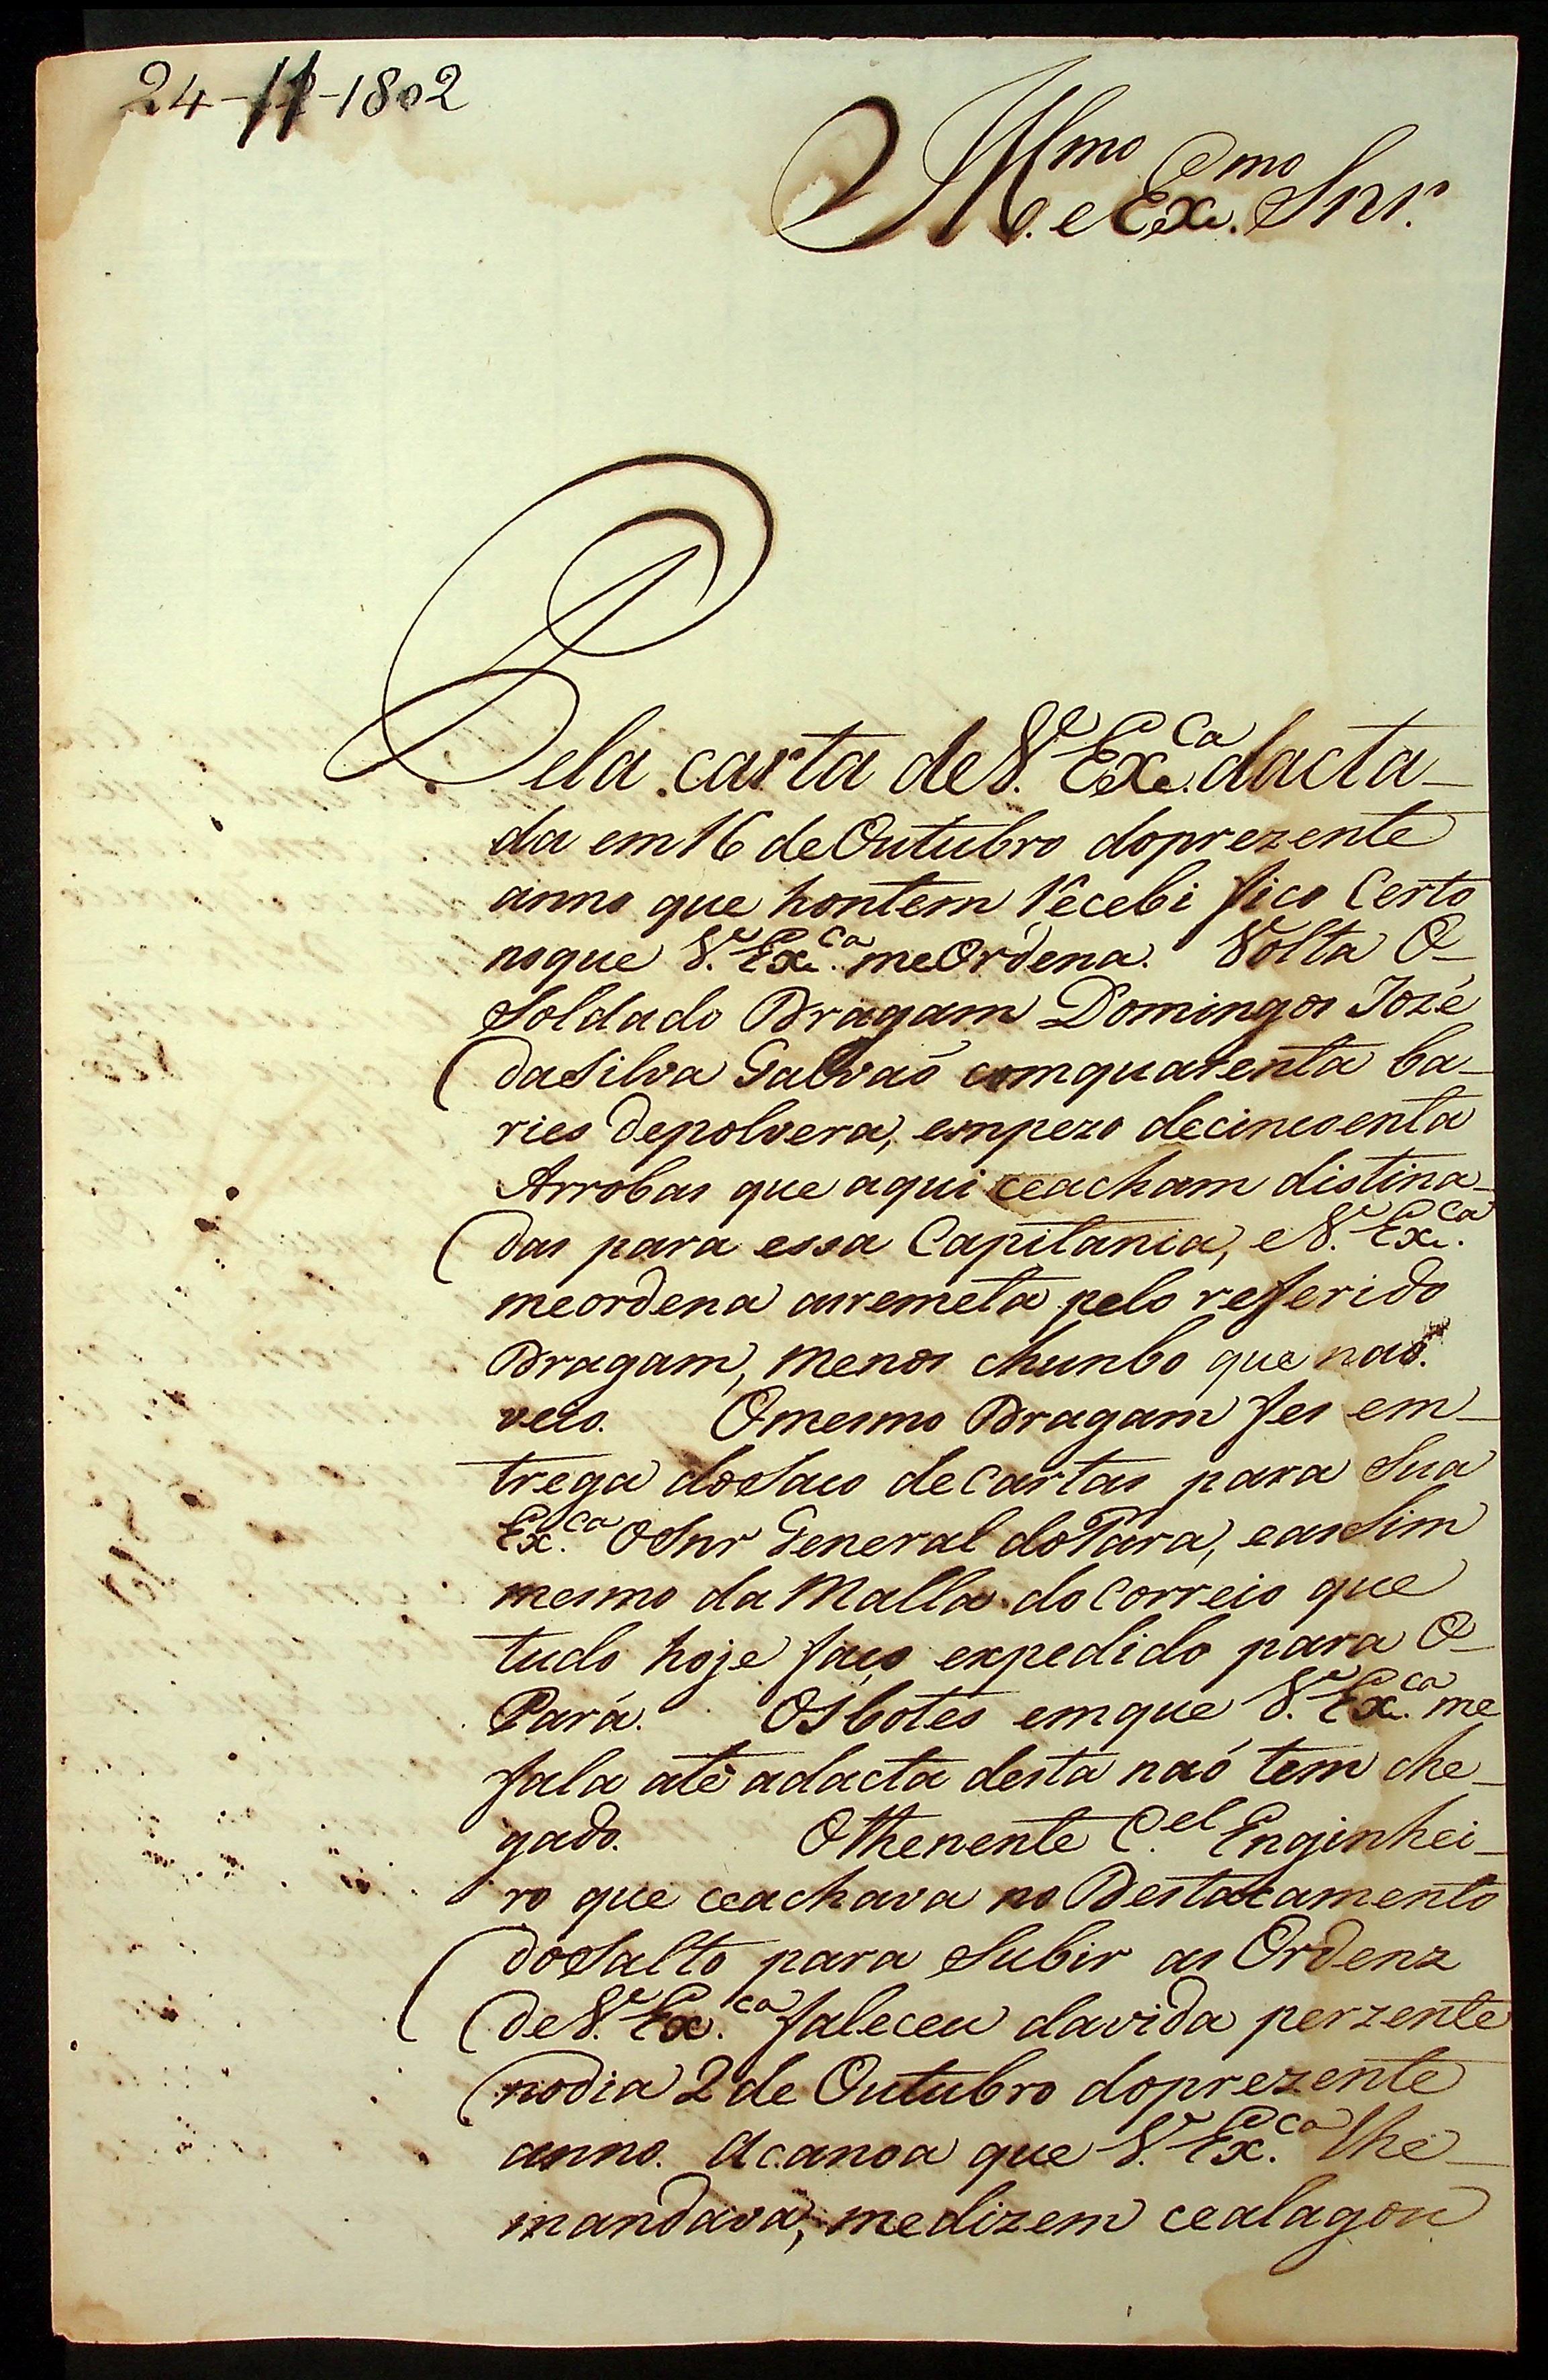 24-11-1802
Illmo. e Exmo. Snr.
Pela carta de V. Exca. dacta-
da em 16 de Outubro do prezente
anno que hontem recebi fico Certo
no que V. Exca. me Ordena. Volta O
Soldado Dragam Domingos Jozé
da Silva Galvaõ com quarenta ba-
ries de polvera, em pezo de cincoenta
Arrobas que aqui ce acham distina-
das para essa Capitania, e V. Exca.
me ordena as remeta pelo refferido
Dragam, menos chunbo que naõ
veio. O mesmo Dragam fes em-
trega do Saco de Cartas para Sua
Exca. O Snr General do Pará, e as Sim
mesmo da Malla do Correio que
tudo hoje faço expedido para O
Pará. Os botes em que V. Exca. me
fala atê a dacta desta naõ tem che-
gado. O Thenente Cel. Enginhei-
ro que ce achava no Destacamento
do Salto para Subir as Ordenz
de V. Exca. faleceu da vida perzente
no dia 2 de Outubro do prezente
anno. A canoa que V. Exca. lhe
mandava, me dizem ce alagou